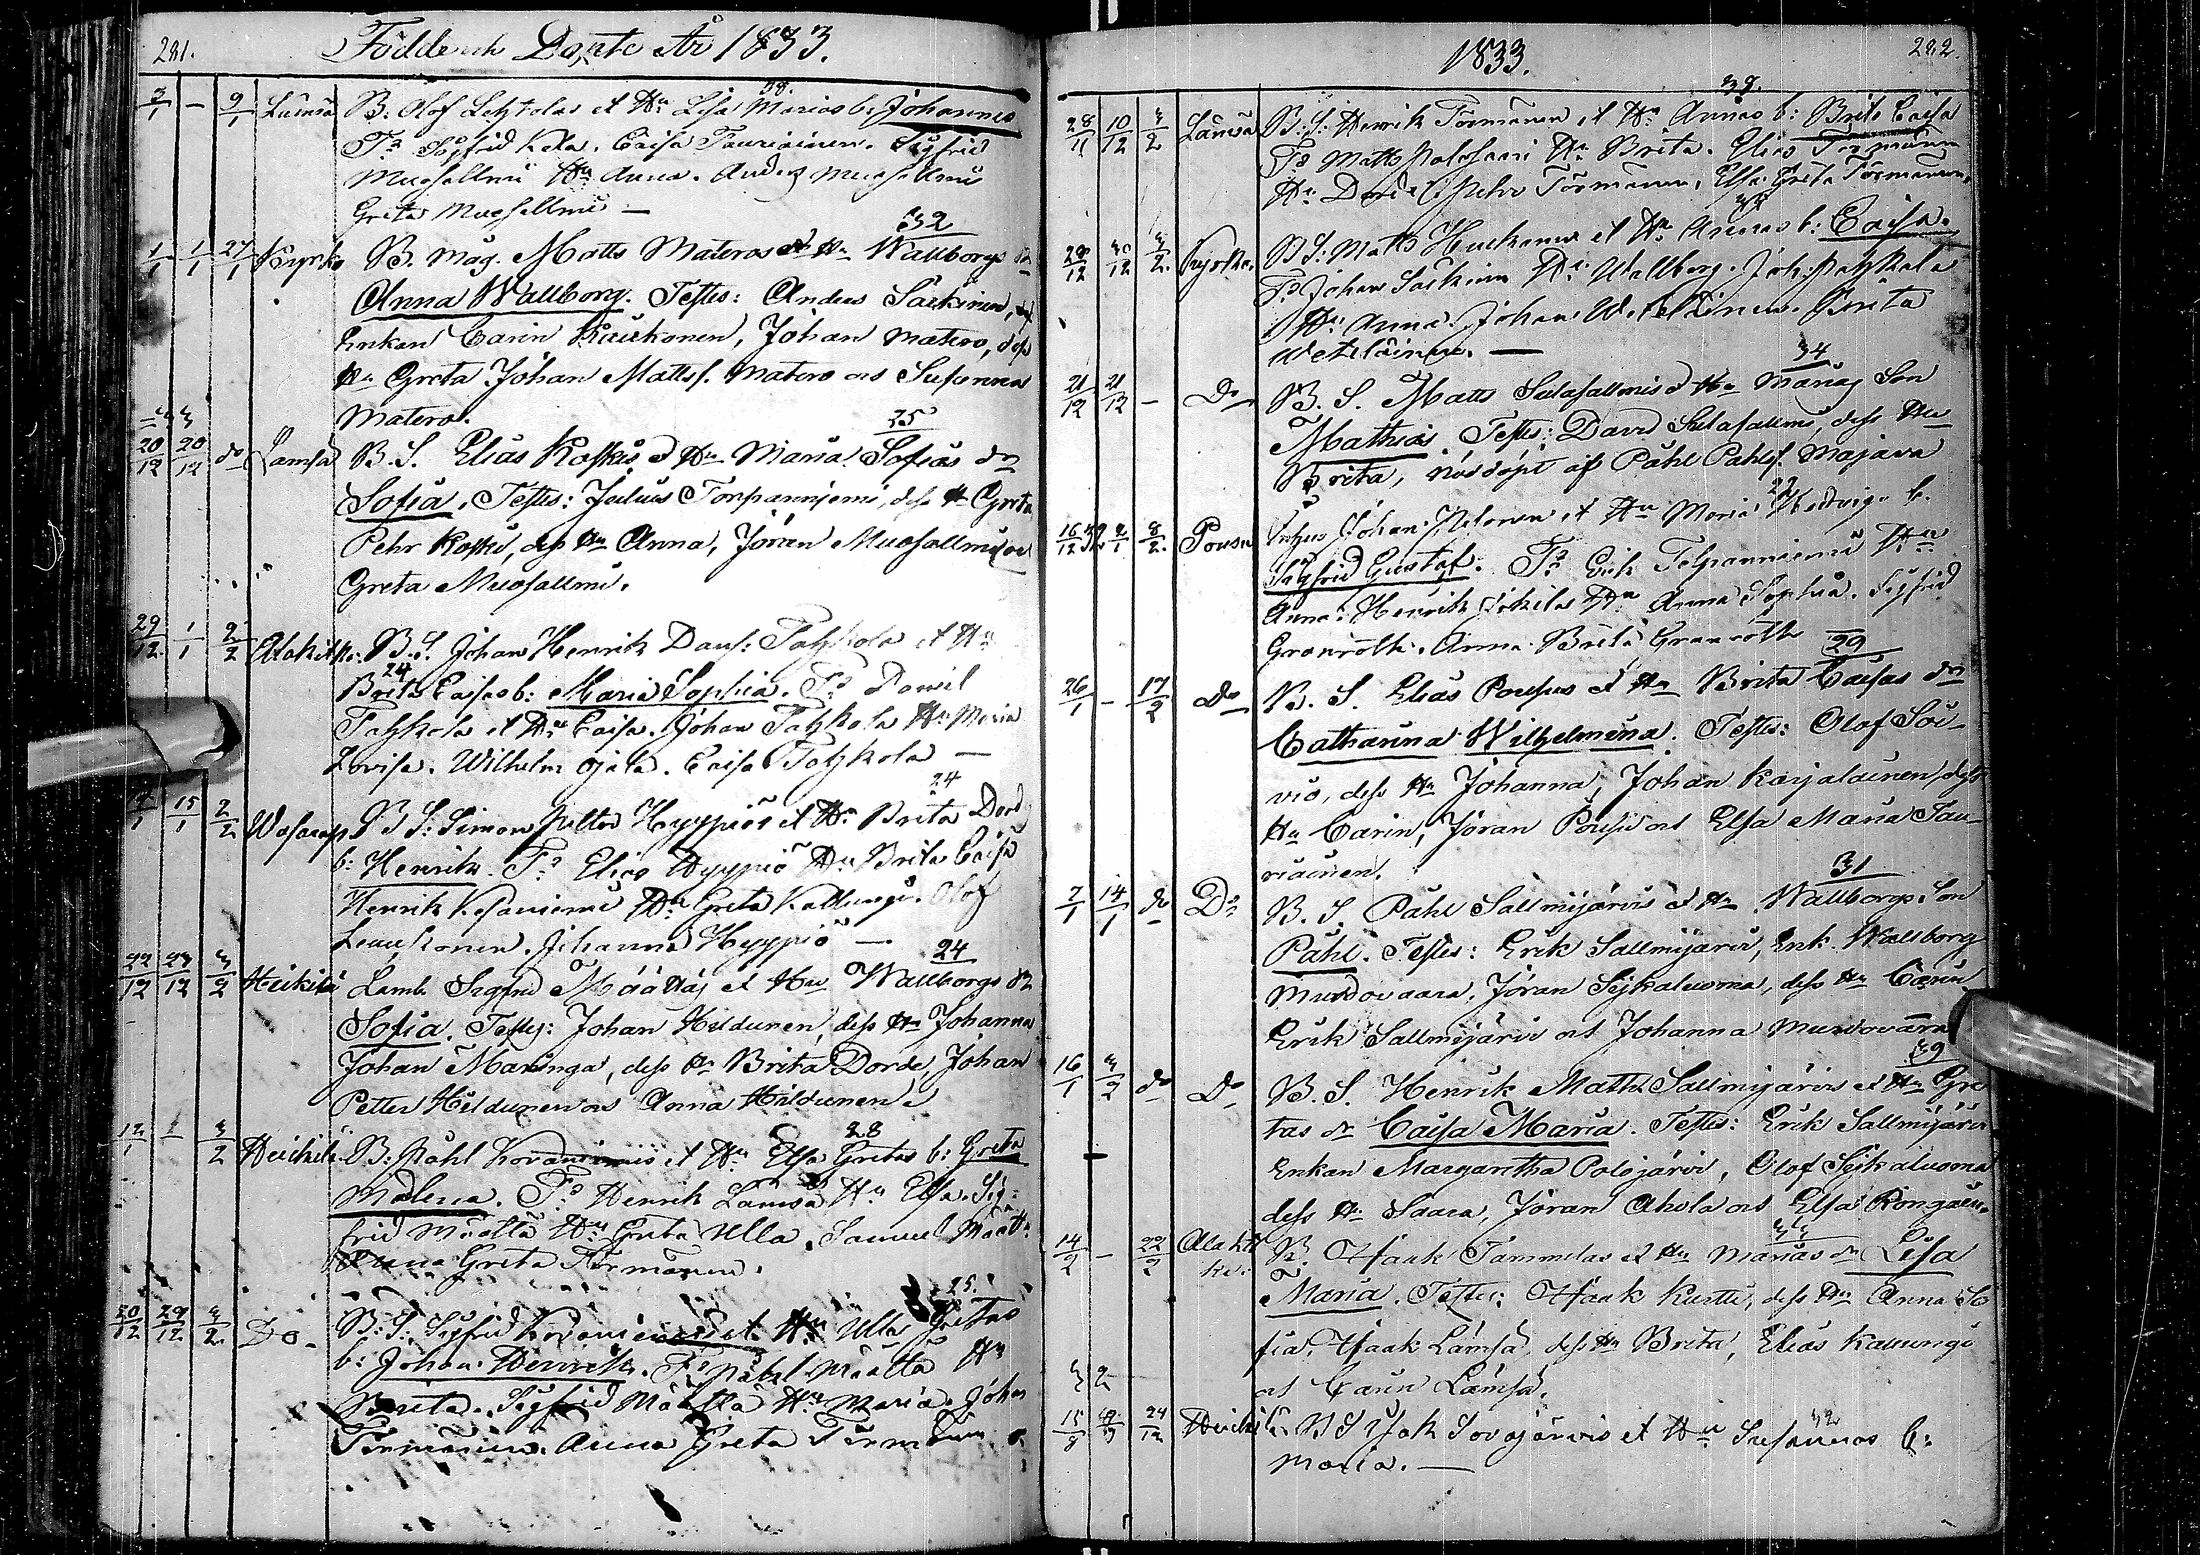 281. Född och Döpte År 1833.
38.
3/1 – 9/1 Lämsä B. Olof et Hu Lisa Marias b: Johannes
Ts Sigfrid Kela. Caisa Tauriainen. Sigfrid
Muosallmi Hu Anna. Anders Muosallmi
Greta Muosallmi —
32
1/1 1/1 27/1 Kyrko B. Måg. Matts Materos et Hu Wallborgs dr
Anna Wallborg. Testes: Anders Särkinen,
Enkan Carin Kaukonen, Johan Matero, dess
Hu Greta Johan Mattss. Matero och Susanna
Matero.
35
20/12 20/12 do Lämsä B. S. Elias Koskis et Hu Maria Sofias dr
Sofia. Testes: Julius Torpanniemi, dess Hu Greta
Pehr Koski, dess Hu Anna, Jöran Muosallmi och
Greta Muosallmi.
29/12 1/1 2/2 Alakitk: B. S. Johan Henrik Dans: Tatzkola et Hu
24
Brita Caisas b: Maria Sophia. Ts Daniel
Tatzkola et Hu Caisa. Johan Tatzkola Hu Maria
Lovisa. Wilhelm Ojala. Caisa Tatzkola —
24
15/1 2/2 B S: Simon Petter Hyypiös et Hu Brita Dord
b: Henrik. Ts Elias Hyypiö Hu Brita Caisa
Henrik Kesäniemi Hu Greta Kallungi. Olof
Leuukonen. Johanna Hyypiö —
24
22/12 23/12 3/2 Heikilä Lamb. Sigfrid Määttäs et Hu Wallborgs dr
Sofia. Testes: Johan Hildunen, dess Hu Johanna
Johan Maninga, dess Hu Brita Dorde, Johan
Petter Hildunen och Anna Hildunen.
28
12/1 3/2 Heikilä B: Påhl Korvaniemis et Hu Elsa Gretas b: Greta
Malena. Ts Henrik Lämsä Hu Elsa. Sig-
frid Määttä Hu Greta Ulla. Samuel Määttä
Anna Greta Törmänen.
25.
20/12 29/12 3/2. Do B: S: Sigfrid Korvaniemis et Hu Ulla Gretas
b: Johan Henrik. Ts Påhl Määttä Hu
Brita. Sigfrid Määttä Hu Maria. Johan
Törmänen. Anna Greta Törmänen
1833. 282.
38.
28/11 10/12 3/2 Lämsä B: S: Henrik Törmänen et Hu Annas b: Brita Caisa
Ts Matts Palosaari Hu Brita. Elias Törmänen
Hu Dorde. Petter Törmänen, Elsa Greta Törmänen.
28/12 30/12 3/2. Kyrko. B S: Matts Huukonens et Hu Annas b: Caisa.
Ts Johan Särkinen Hu Wallborg. Joh: Patzkala
Hu Anna. Johan Wetelainen. Brita
Wetelainen. —
34
21/12 21/12 – Do B. S. Matts Suilasallmis et Hu Marias Son
Mathias. Testes: David Suilasallmi, dess Hu
Brita, nöddöpt af Påhl Pahls. Majava
29
16/12 32. 2/1 8/2. Posio Johan Pelonen et Hu Maria Hedvigs b.
Sigfrid Gustaf. Ts Erik Telpanniemi Hu
Anna. Henrik Jokila Hu Anna Sophia. Sigfrid
Granroth. Anna Brita Granroth
29
26/1 – 17/2 Do B. S. Elias Posios et Hu Brita Caisas dr
Catharina Wilhelmina. Testes: Olof Soi-
vio, dess Hu Johanna, Johan Karjalainen, dess
Hu Carin, Jöran Posio och Elsa Maria Tau-
riainen.
31
7/1 14/1 do Do B. S. Påhl Sallmijärvis et Hu Wallborgs Son
Påhl. Testes: Erik Sallmijärvi, Enk. Wallborg
Murdovaara, Jöran Sejkaluoma, dess Hu Carin
Erik Sallmijärvi och Johanna Murdovaara
39
16/1 3/2 do Do B. S. Henrik Matts. Sallmijärvis et Hu Gre
tas dr Caisa Maria. Testes: Erik Sallmijärvi
Enkan Margaretha Polojärvi, Olof Sejkaluoma
dess Hu Saara, Jöran Ahola och Elsa Kongain.
14/2 – 22/2 Alakit B. Isaak Tammelas et Hu Marias dr Lisa
ka:
Maria. Testes: Isaak Kurtti, dess Hu Anna So
fia, Isaak Lämsä, dess Hu Brita, Elias Kallungi
och Carin Lämsä.
32
24/12 Heikilä B S Isak Sovajärvis et Hu Susannas b:
Maria. —